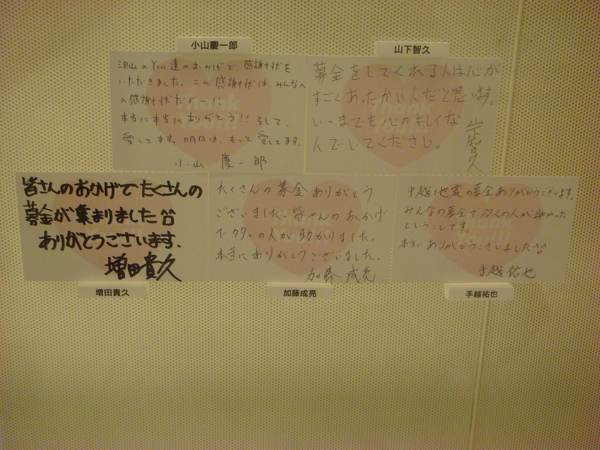 小山慶一郎
沢山のYou達のおかげで感謝状を
いただきました。この感謝状は、みんなの
感謝状だす
本当に本当にありがとう!!そして、
愛してます。明日は、もっと愛してます。
小山 慶一郎
山下智久
募金をしてくれる人は心が
すごくあったかい人だと思います。
いつまでも心のキレイな
人でいてください。
山下智久
皆さんのおかげでたくさんの
募金が集まりました
ありがとうございます.
増田貴久
増田貴久
たくさんの募金ありがとう
ございました。皆さんのおかげ
で多くの人が助かりました。
本当にありがとうございました。
加藤成亮
加藤成亮
地震の募金ありがとうございます。
みんなの募金で 人が助かった
ということです。
本当にありがとうございました
手越祐也
手越祐也